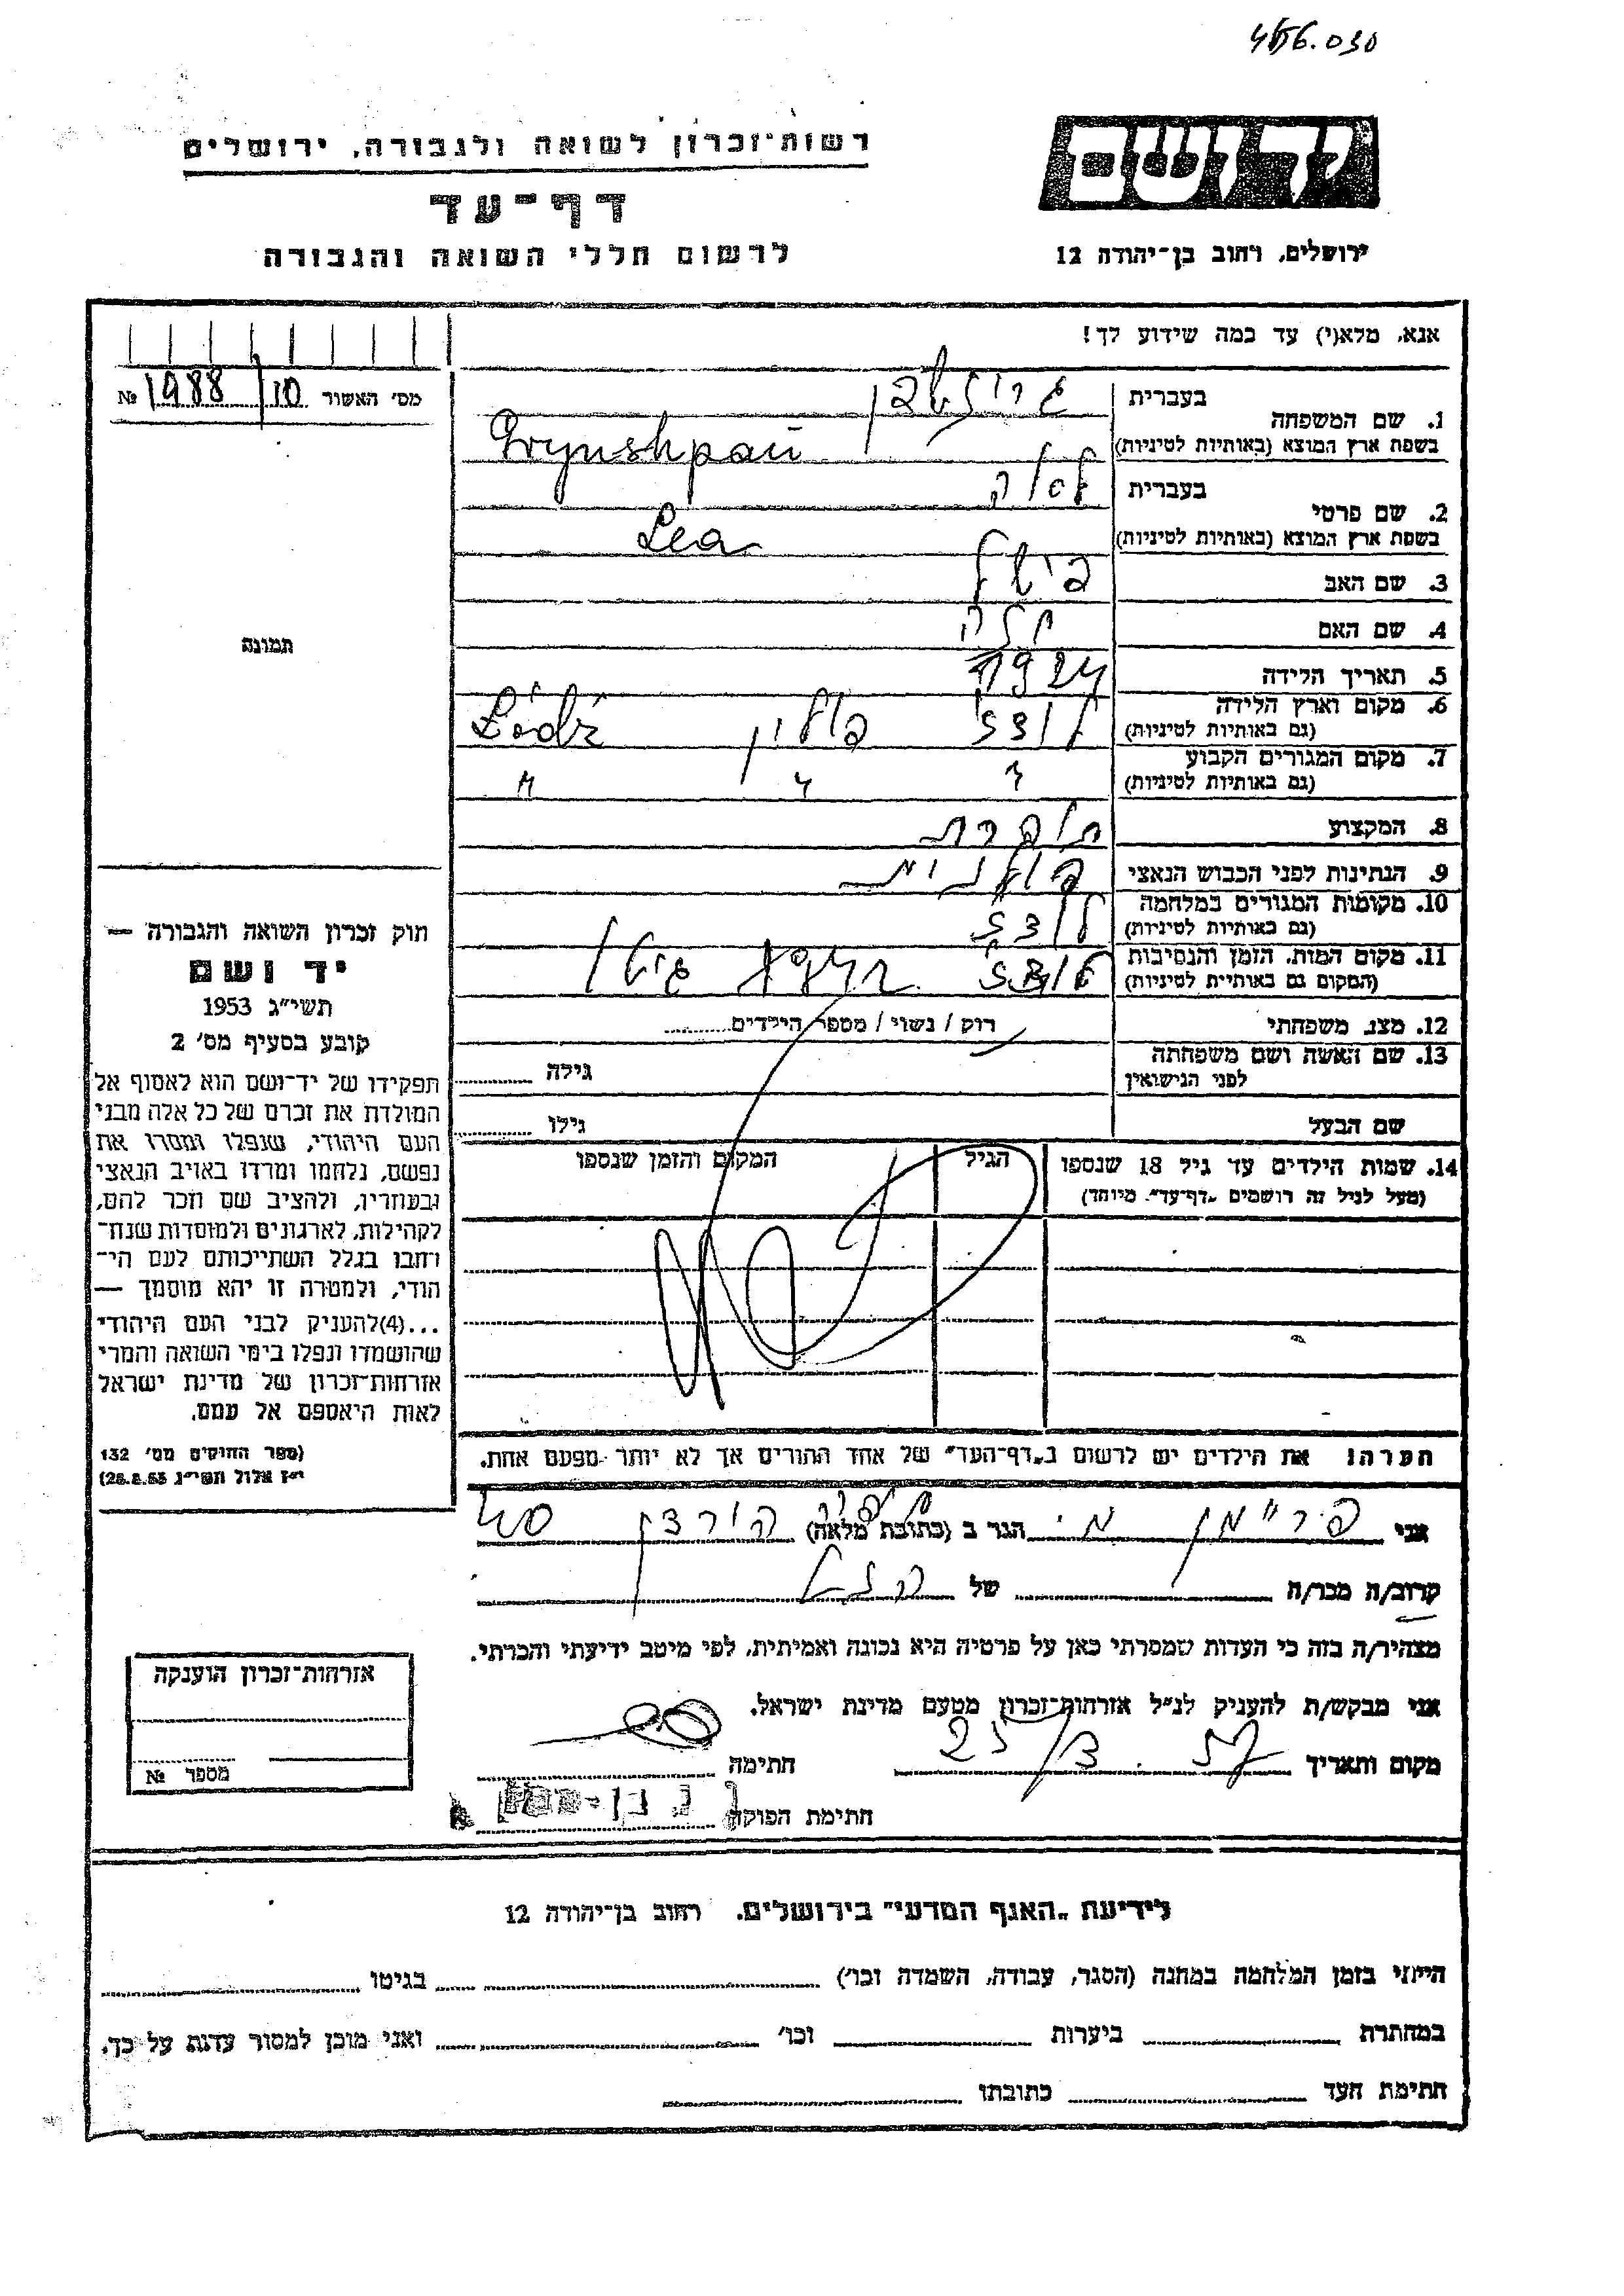 רשות־זכרון לשואה ולגבורה, ירושלים
דף־עד
לרשום חללי השואה והגבורה
יד ושם
ירושלים, רחוב בן־יהודה 12
אנא, מלא(י) עד כמה שידוע לך!
מס' האשור 10/1988 №
1. שם המשפחה
בעברית
בשפת ארץ המוצא (באותיות לטיניות) Grynshpan
2. שם פרטי
בעברית לאה
בשפת ארץ המוצא (באותיות לטיניות) Lea
3. שם האב
4. שם האם
5. תאריך הלידה 1924
6. מקום וארץ הלידה לודז פולין Łódź
(גם באותיות לטיניות)
7. מקום המגורים הקבוע " " "
(גם באותיות לטיניות)
8. המקצוע תופרת
9. הנתינות לפני הכבוש הנאצי פולנית
10. מקומות המגורים במלחמה לודז
(גם באותיות לטיניות)
11. מקום המות, הזמן והנסיבות לודז גיטו
(המקום גם באותיות לטיניות)
12. מצב משפחתי רוק / נשוי / מספר הילדים
13. שם האשה ושם משפחתה גילה
לפני הנישואין
שם הבעל גילו
14. שמות הילדים עד גיל 18 שנספו הגיל המקום והזמן שנספו
(מעל לגיל זה רושמים „דף־עד” מיוחד)
הערה! את הילדים יש לרשום ב„דף־העד” של אחד ההורים אך לא יותר מפעם אחת.
תמונה
חוק זכרון השואה והגבורה —
יד ושם
תשי״ג 1953
קובע בסעיף מס' 2
תפקידו של יד־ושם הוא לאסוף אל
המולדת את זכרם של כל אלה מבני
העם היהודי, שנפלו ומסרו את
נפשם, נלחמו ומרדו באויב הנאצי
ובעוזריו, ולהציב שם וזכר להם,
לקהילות, לארגונים ולמוסדות שנח־
רבו בגלל השתייכותם לעם הי־
הודי, ולמטרה זו יהא מוסמך —
...(4)להעניק לבני העם היהודי
שהושמדו ונפלו בימי השואה והמרי
אזרחות־זכרון של מדינת ישראל
לאות היאספם אל עמם.
(ספר החוקים מס' 132
י״ז אלול תשי״ג 28.8.53)
אני הגר ב (כתובת מלאה)
קרוב/ה מכר/ה של
מצהיר/ה בזה כי העדות שמסרתי כאן על פרטיה היא נכונה ואמיתית, לפי מיטב ידיעתי והכרתי.
אני מבקש/ת להעניק לנ״ל אזרחות־זכרון מטעם מדינת ישראל.
מקום ותאריך 25/3.57 חתימה
חתימת הפוקד
אזרחות־זכרון הוענקה
מספר №
לידיעת „האגף המדעי” בירושלים, רחוב בן־יהודה 12
הייתי בזמן המלחמה במחנה (הסגר, עבודה, השמדה וכו') בגיטו
במחתרת ביערות וכו' ואני מוכן למסור עדות על כך.
חתימת העד כתובתו